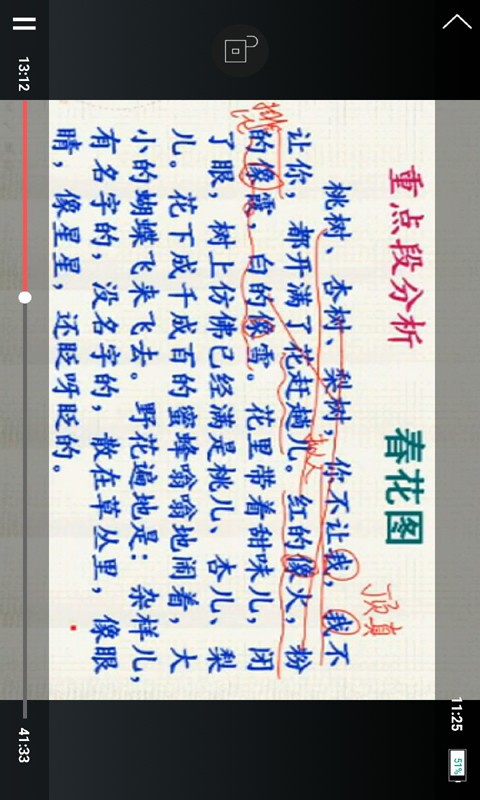 11:25
51%
重点段分析
春花图
顶真
桃树、杏树、梨树，你不让我，我不
拟人
让你，都开满了花赶趟儿。红的像火，粉
排比
的像霞，白的像雪。花里带着甜味儿，闭
了眼，树上仿佛已经满是桃儿、杏儿、梨
儿。花下成千成百的蜜蜂嗡嗡地闹着，大
小的蝴蝶飞来飞去。野花遍地是：杂样儿，
有名字的，没名字的，散在草丛里，像眼
睛，像星星，还眨呀眨的。
13:12
41:33